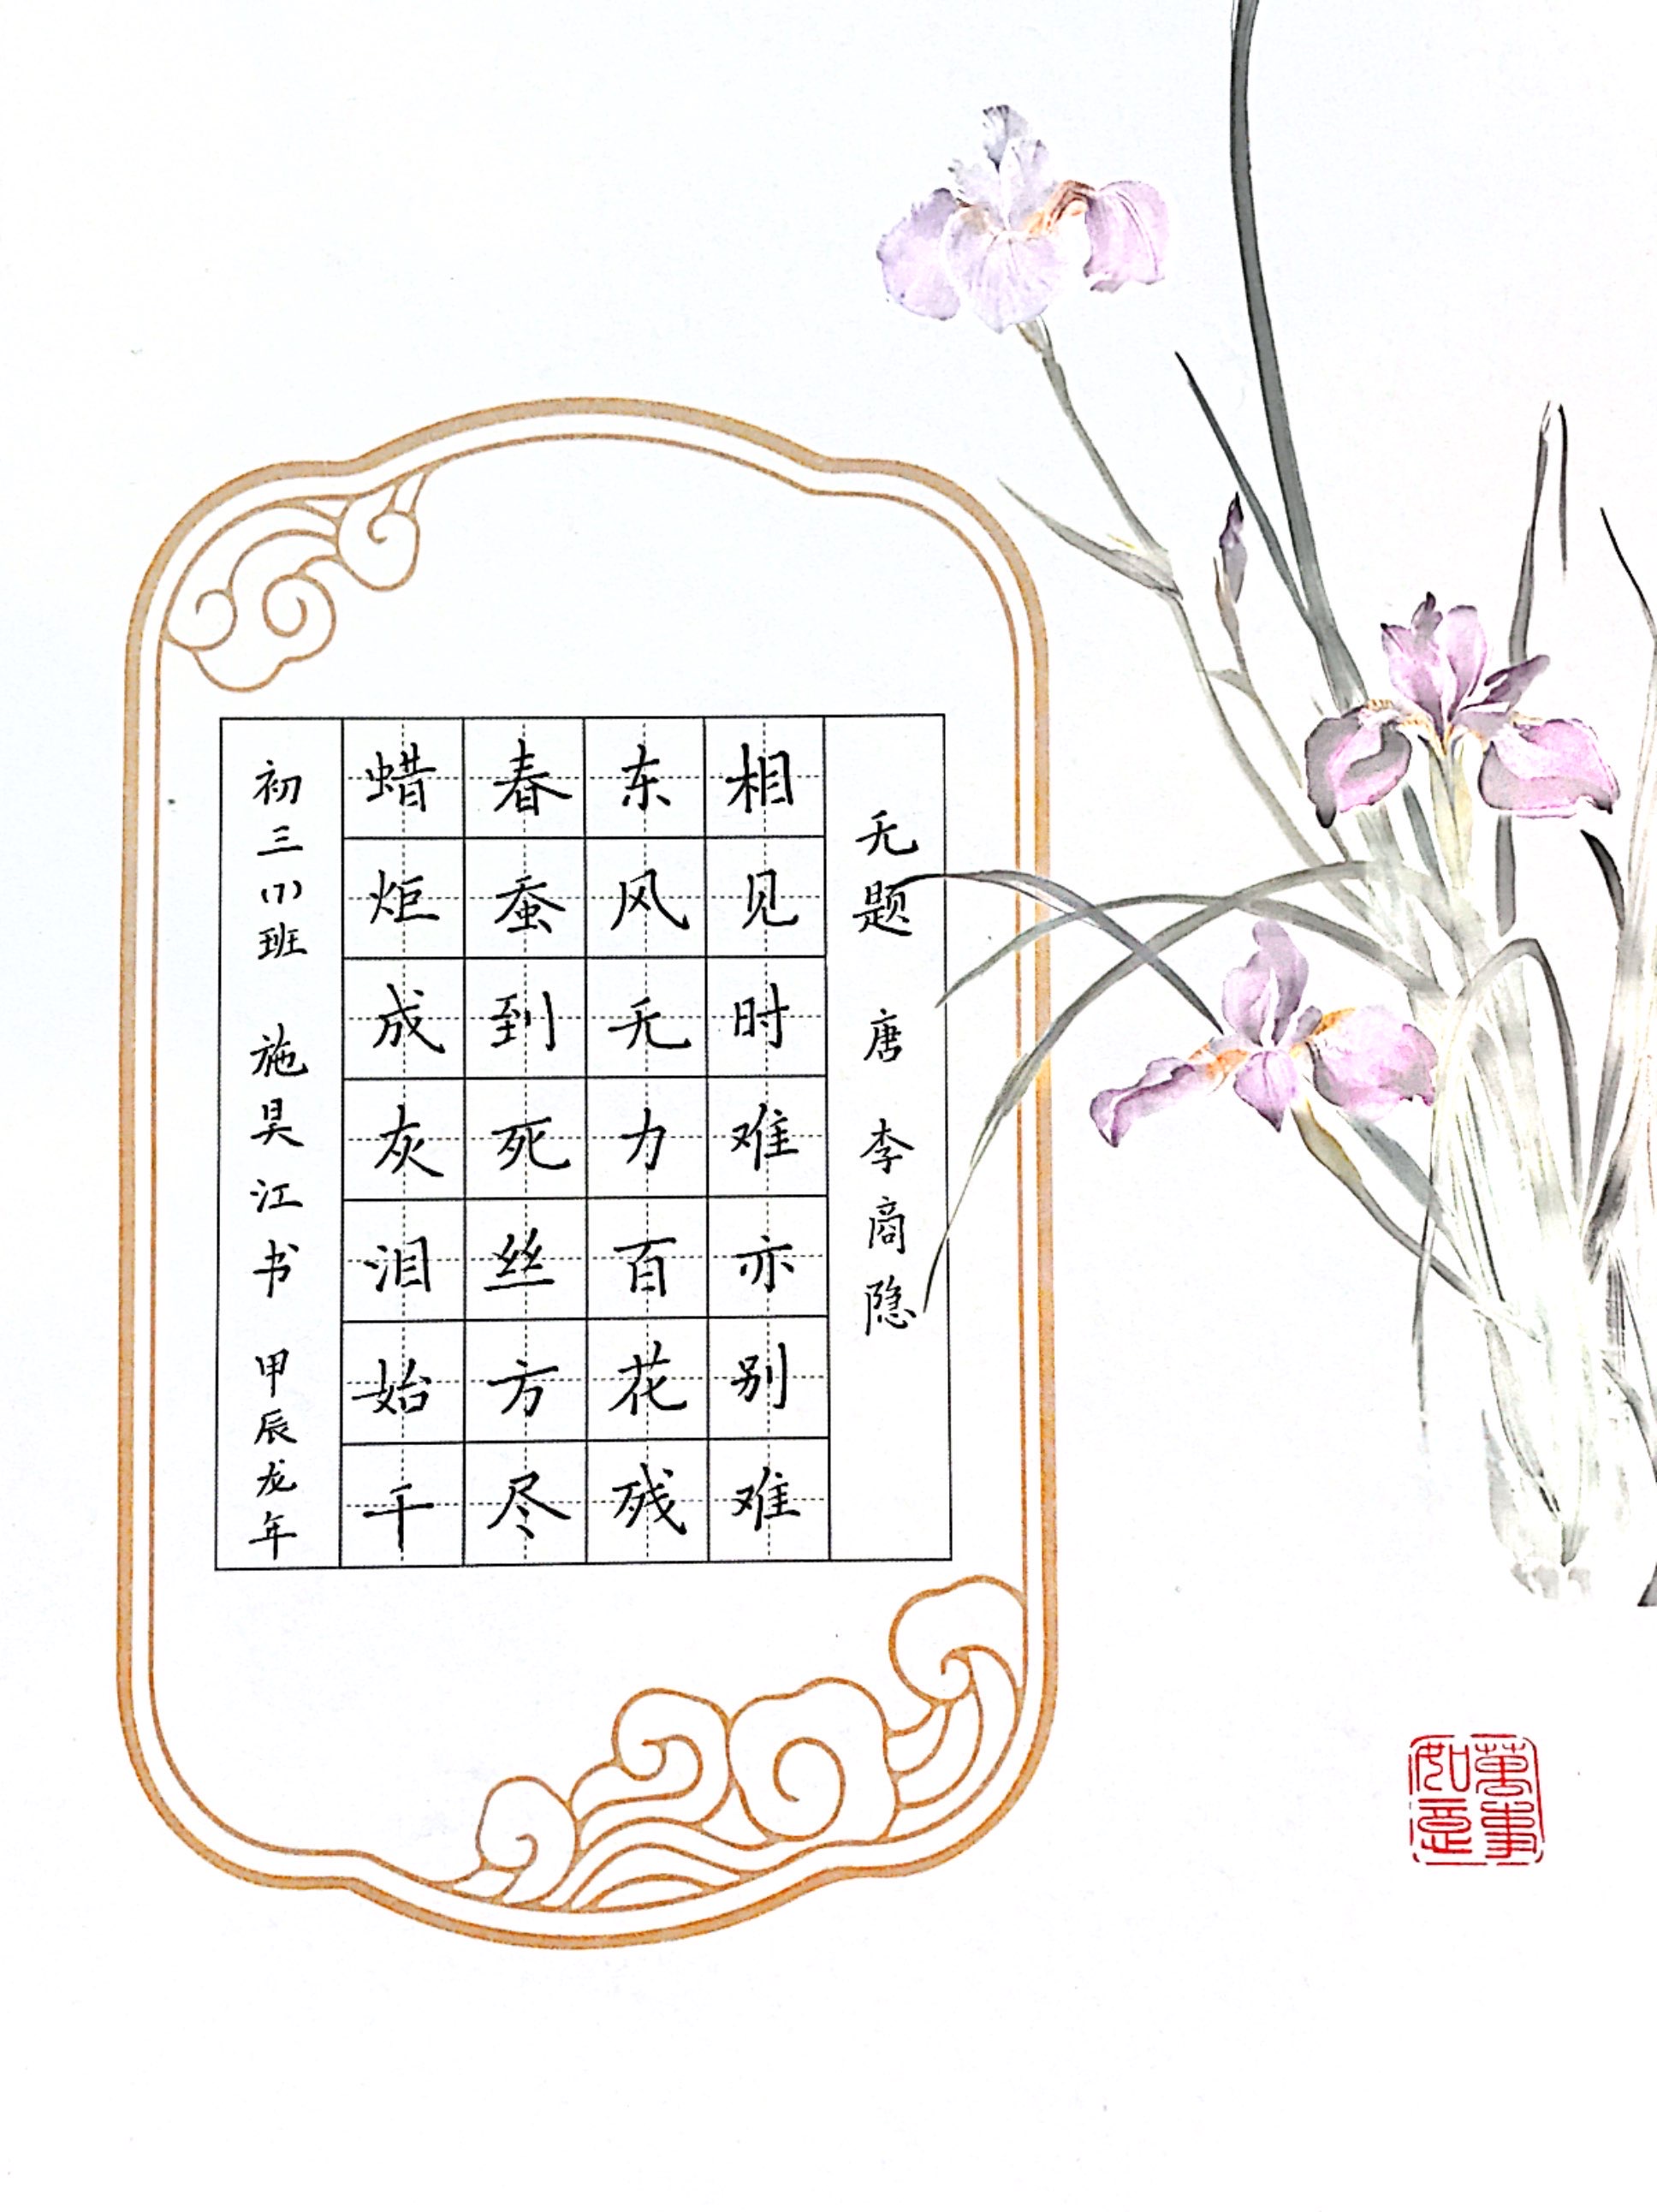 无题 唐 李商隐
相见时难亦别难
东风无力百花残
春蚕到死丝方尽
蜡炬成灰泪始干
初三(7)班 施昊江书 甲辰龙年
萬事如意